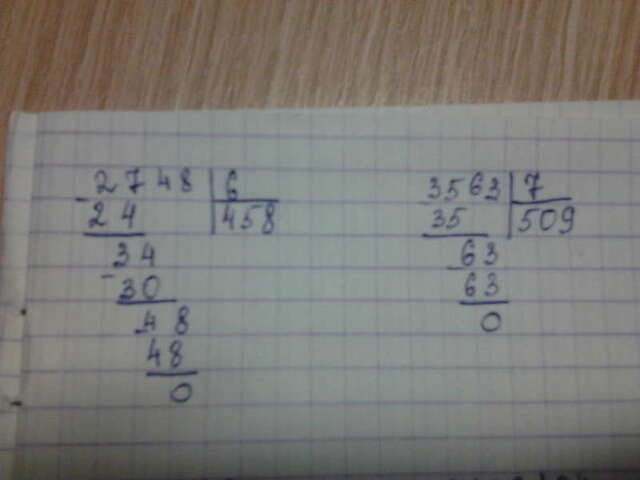 2748 | 6
- 24 | 458
34
- 30
48
48
0
3563 | 7
35 | 509
- 63
63
0